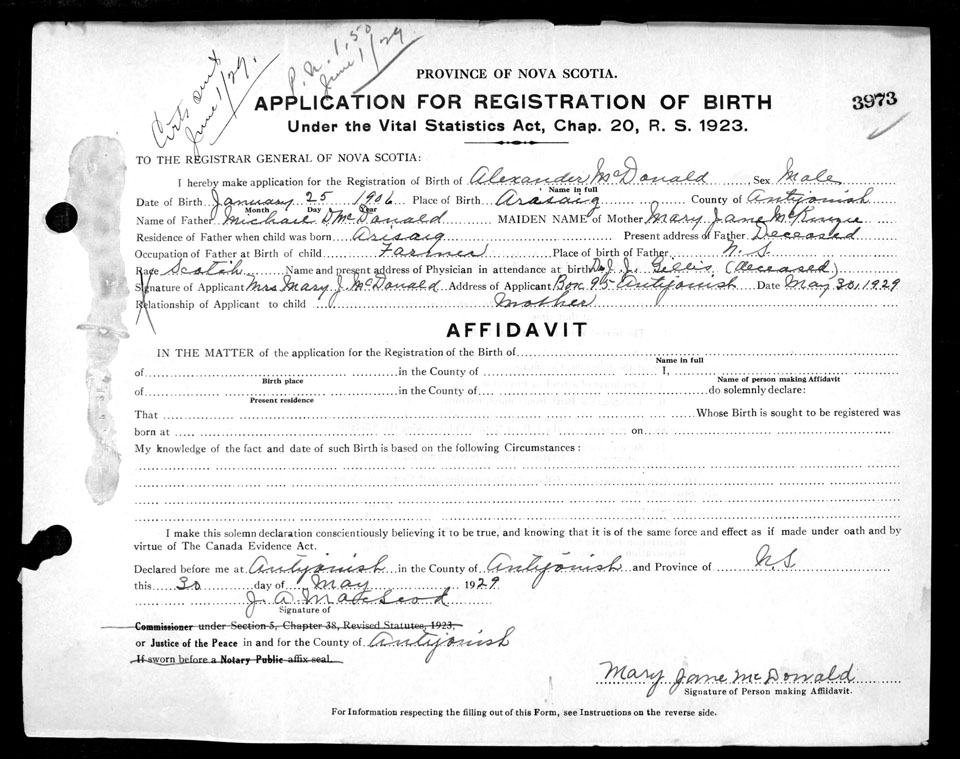 Certs out
June 1/29.
P. N. 1.50
June 1/29
PROVINCE OF NOVA SCOTIA.
APPLICATION FOR REGISTRATION OF BIRTH
3973
Under the Vital Statistics Act, Chap. 20, R. S. 1923.
TO THE REGISTRAR GENERAL OF NOVA SCOTIA:
I hereby make application for the Registration of Birth of Alexander McDonald Sex Male
Name in full
Date of Birth January 25 1906 Place of Birth Arasaig County of Antijonish
Month Day Year
Name of Father Michael D McDonald MAIDEN NAME of Mother Mary Jane McKinzie
Residence of Father when child was born Arisaig Present address of Father Deceased
Occupation of Father at Birth of child Farmer Place of birth of Father N. S.
Race Scotch Name and present address of Physician in attendance at birth Dr J. J. Gillis (deceased)
Signature of Applicant Mrs Mary J. McDonald Address of Applicant Box 95 Antijonish Date May 30, 1929
Relationship of Applicant to child mother
AFFIDAVIT
IN THE MATTER of the application for the Registration of the Birth of
Name in full
of in the County of I,
Birth place Name of person making Affidavit
of in the County of do solemnly declare:
Present residence
That Whose Birth is sought to be registered was
born at on
My knowledge of the fact and date of such Birth is based on the following Circumstances:
I make this solemn declaration conscientiously believing it to be true, and knowing that it is of the same force and effect as if made under oath and by
virtue of The Canada Evidence Act.
Declared before me at Antijonish in the County of Antijonish and Province of N. S
this 30 day of May 1929
J. A. MacLeod
Signature of
Commissioner under Section 5, Chapter 38, Revised Statutes, 1923,
or Justice of the Peace in and for the County of Antijonish
If sworn before a Notary Public affix seal.
Mary Jane McDonald
Signature of Person making Affidavit.
For Information respecting the filling out of this Form, see Instructions on the reverse side.